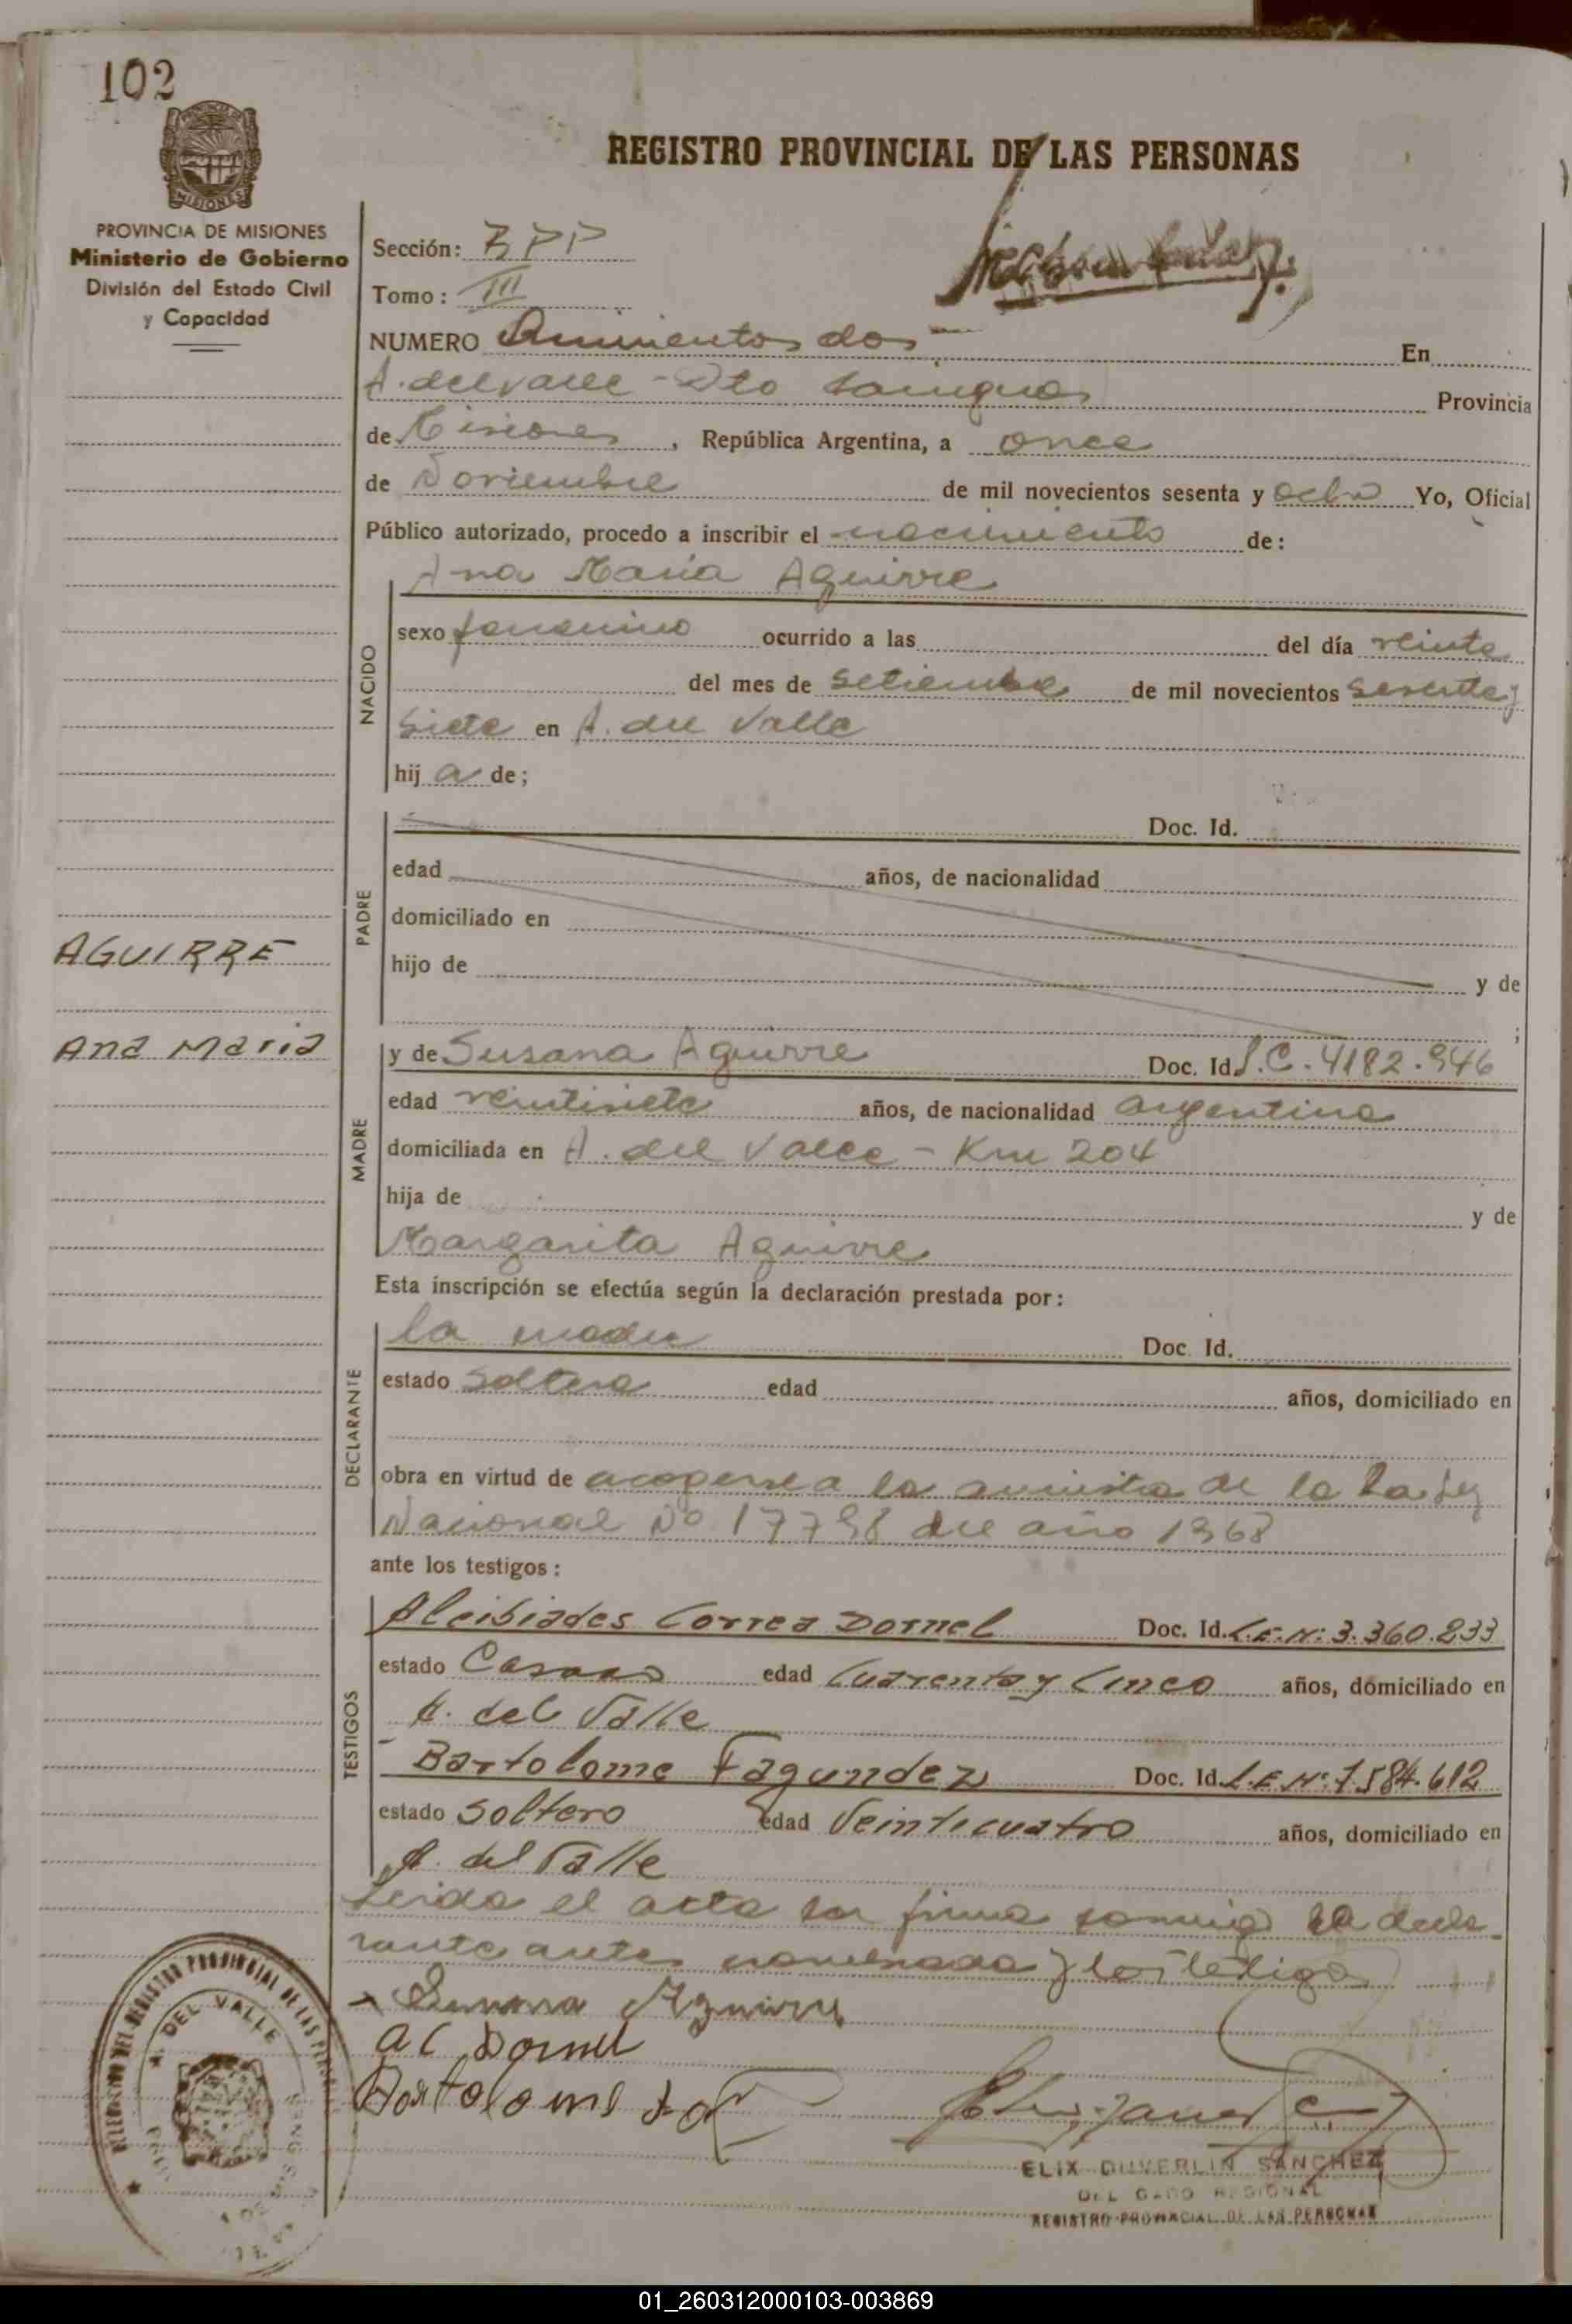 102
REGISTRO PROVINCIAL DE LAS PERSONAS
PROVINCIA DE MISIONES
Ministerio de Gobierno
División del Estado Civil
y Capacidad
Sección: BPP
Tomo: III
NUMERO Quinientos dos En
A. del Valle - Dto Cainguas Provincia
de Misiones, República Argentina, a once
de Noviembre de mil novecientos sesenta y ocho Yo, Oficial
Público autorizado, procedo a inscribir el nacimiento de:
Ana Maria Aguirre
NACIDO
sexo femenino ocurrido a las del día veinte
del mes de setiembre de mil novecientos sesenta y
siete en A. del Valle
hija de;
PADRE
Doc. Id.
edad años, de nacionalidad
domiciliado en
hijo de y de
;
AGUIRRE
Ana Maria
MADRE
y de Susana Aguirre Doc. Id. L.C. 4182.946
edad veintisiete años, de nacionalidad argentina
domiciliada en A. del Valle - Km 204
hija de y de
Margarita Aguirre
Esta inscripción se efectúa según la declaración prestada por:
DECLARANTE
la madre Doc. Id.
estado Soltera edad años, domiciliado en
obra en virtud de acogerse a la amnistia de la Ley
Nacional No 17798 del año 1968
ante los testigos:
TESTIGOS
Alcibiades Correa Dornel Doc. Id. L.E.Nº: 3.360.233
estado Casado edad Cuarenta y Cinco años, domiciliado en
A. del Valle
Bartolome Fagundez Doc. Id. L.E.Nº: 7.584.612
estado Soltero edad Veinticuatro años, domiciliado en
A. del Valle
Leida el acta la firma conmigo la decla
rante antes nombrada y los testigos
Susana Aguirre
A C Dornel
Bartolome
ELIX DUVERLIN SANCHEZ
REGISTRO PROVINCIAL DE LAS PERSONAS
DEL REGISTRO PROVINCIAL DE LAS
A. DEL VALLE
01_260312000103-003869